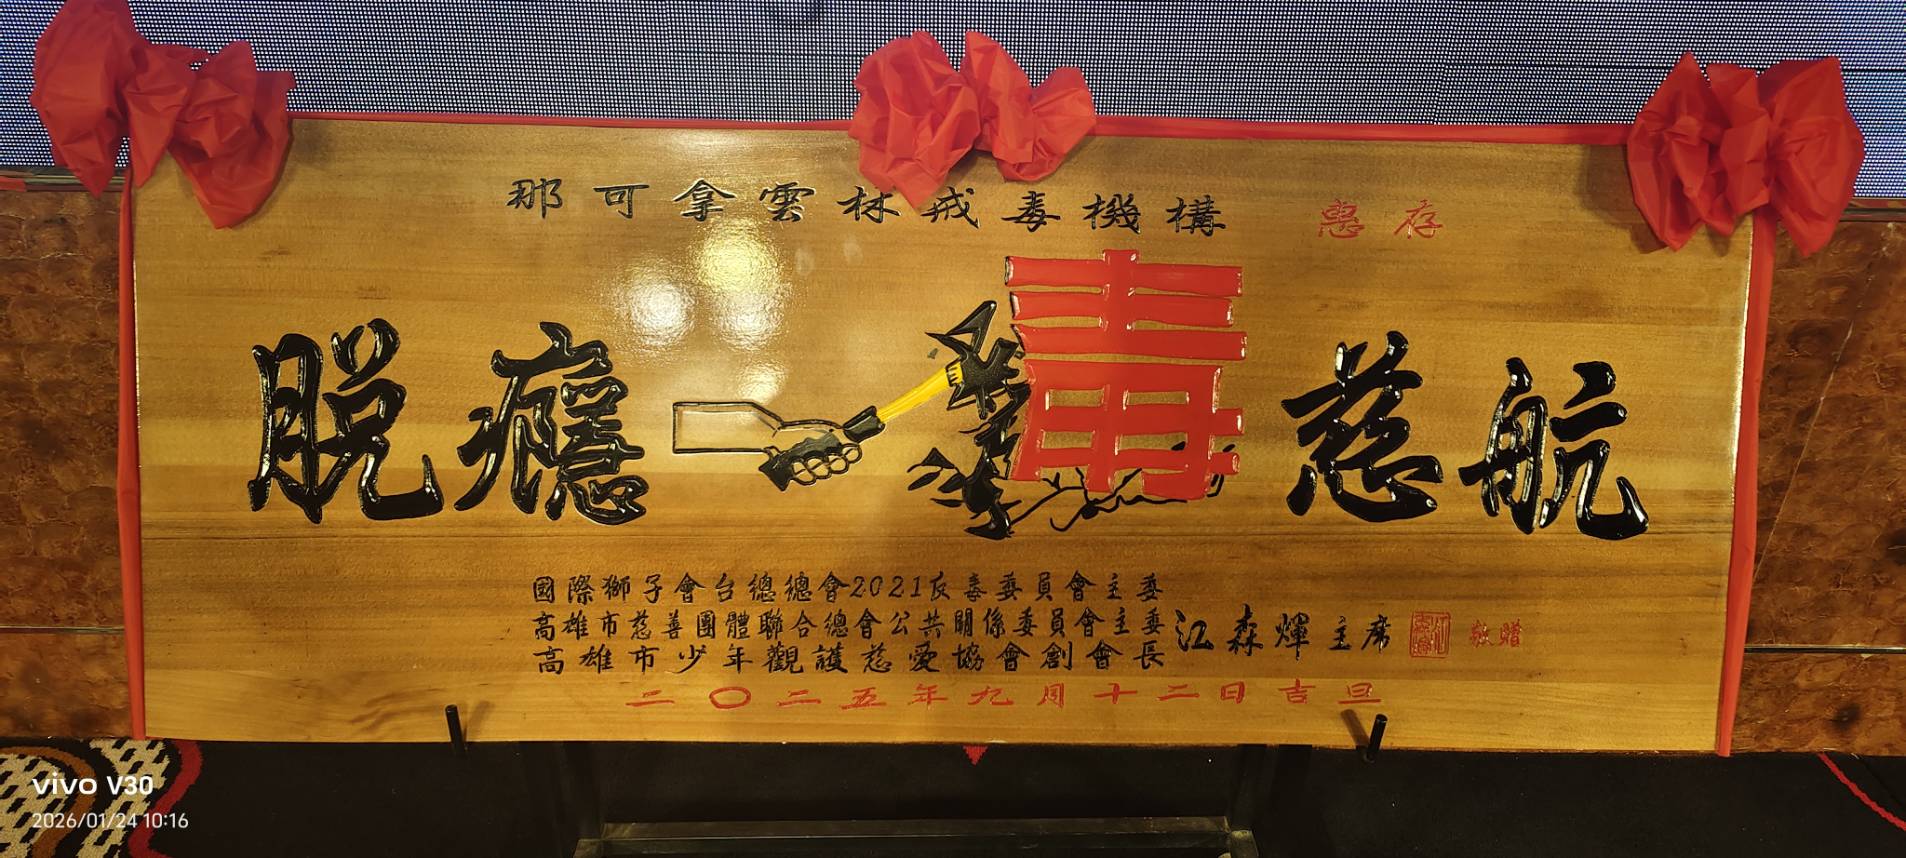 那可拿雲林戒毒機構 惠存
脫癮 毒 慈航
國際獅子會台總總會2021反毒委員會主委
高雄市慈善團體聯合總會公共關係委員會主委
高雄市少年觀護慈愛協會創會長
江森煇主席 敬贈
二〇二五年九月十二日吉旦
vivo V30
2026/01/24 10:16